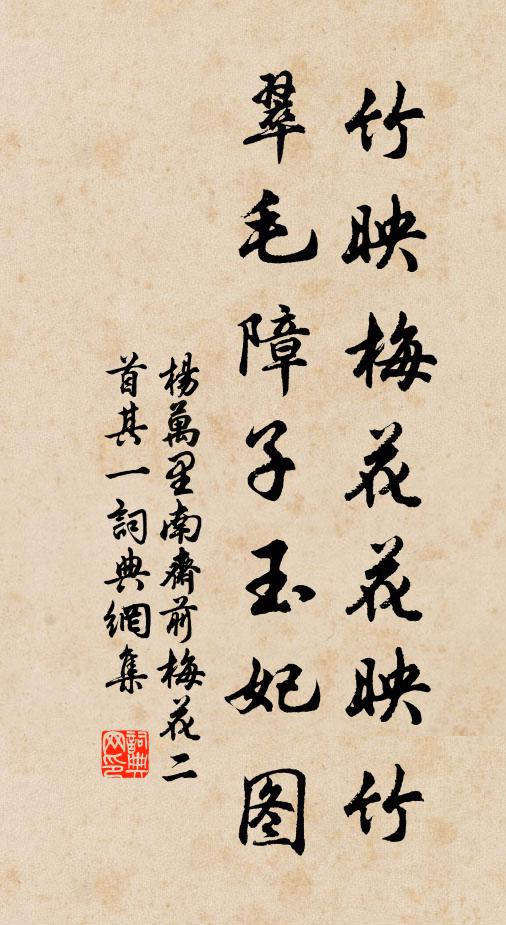 竹映梅花花映竹
翠毛障子玉妃图
楊萬里南齋前梅花二
首其一詞典網集
詞典
网印